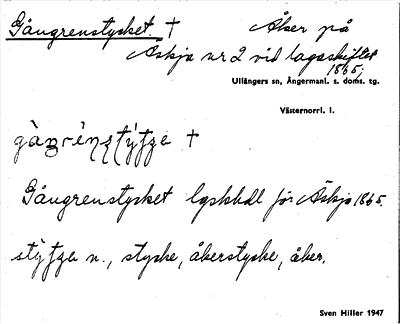 Gångrenstycket. † Åker på
Äskja nr 2 vid lagaskiftet
1865;
Ullångers sn, Ångermanl. s. doms. tg.
Västernorrl. l.
Gångrenstycket lgskhdl för Äskja 1865.
n., stycke, åkerstycke, åker.
Sven Hiller 1947